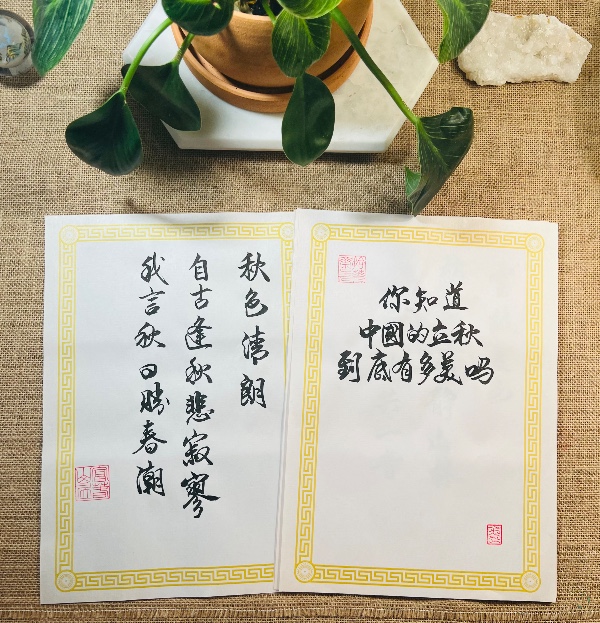 秋色清朗
自古逢秋悲寂寥
我言秋日勝春潮
你知道
中國的立秋
到底有多美吗